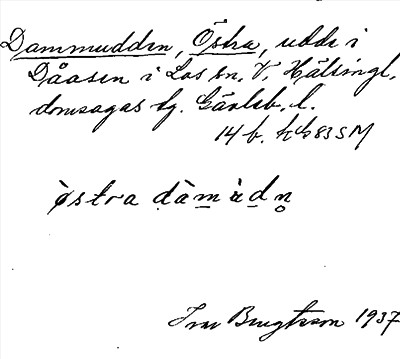 Dammudden, Östra, udde i
Dåasen i Los sn, V. Hälsingl.
domsagas tg. Gävleb. l.
14 f. Kb 83 SM
östra dàmùdn̥
Ivar Bengtsson 1937